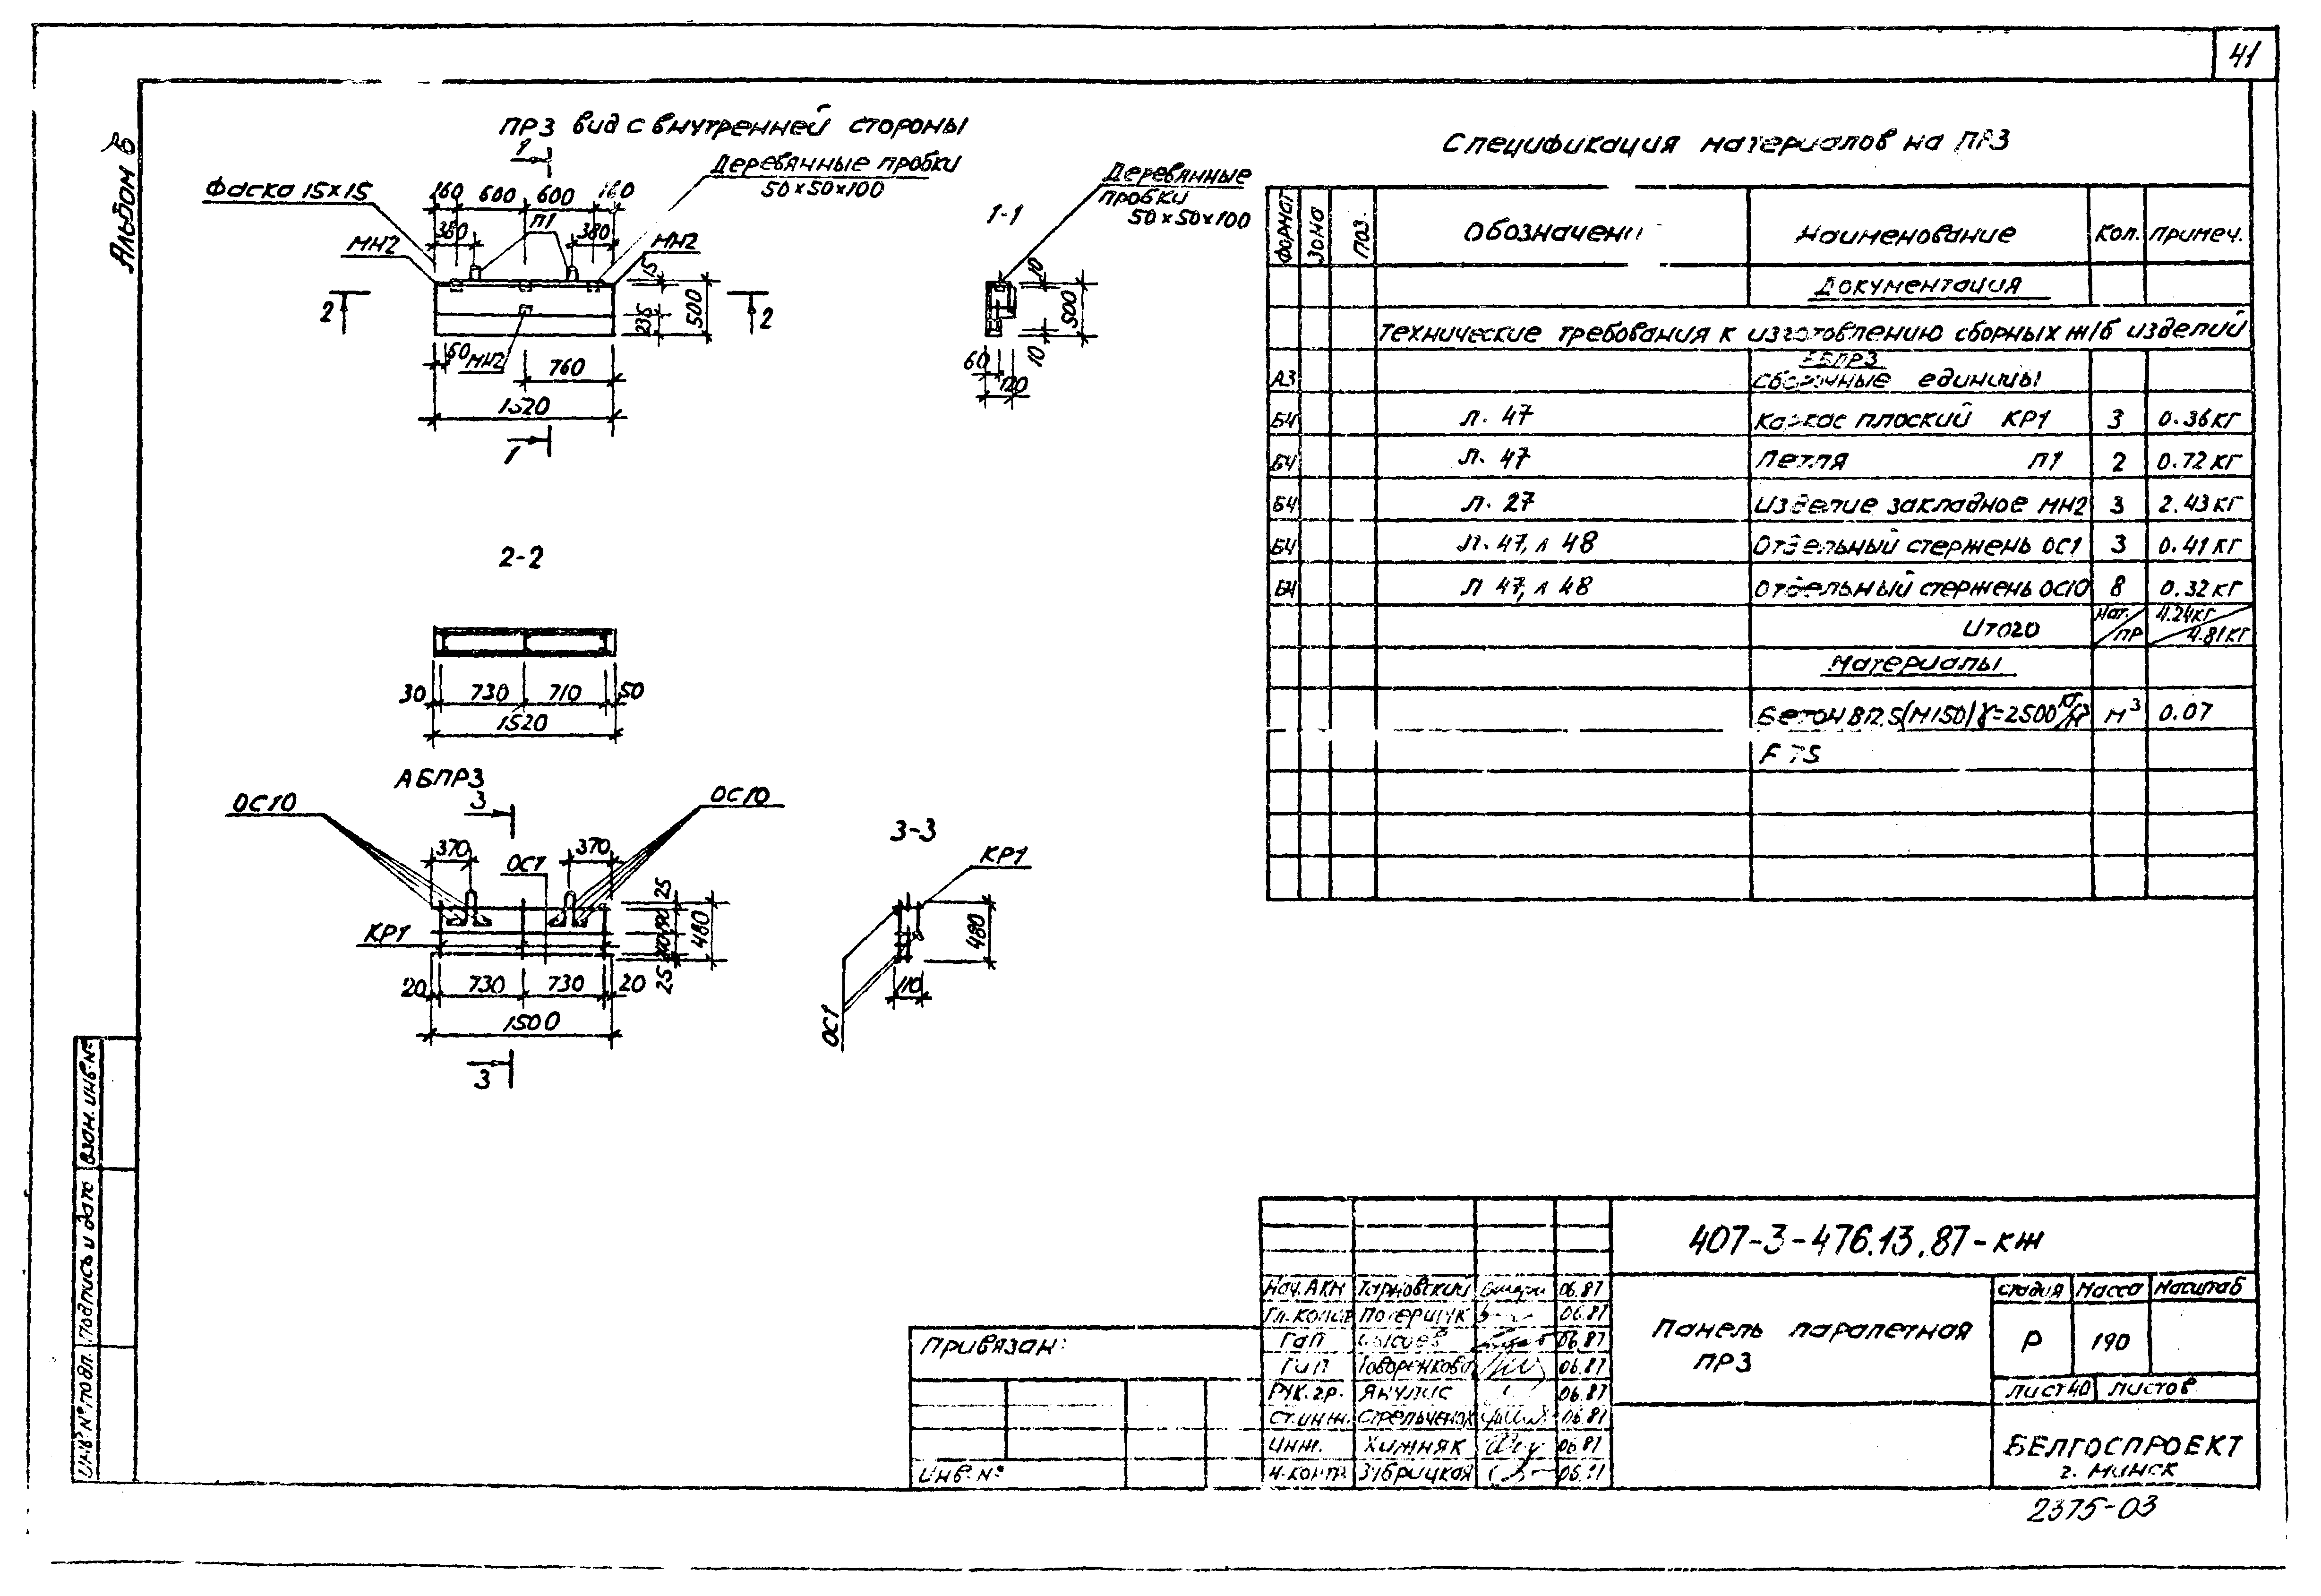 41
Альбом 6
ПР3 вид с внутренней стороны
1
Фаска 15×15
160 600 600 160
Деревянные пробки
50×50×100
380 П1 380
МН2 МН2
15
500
235
2 2
60 МН2 760
1520
1
1-1
Деревянные
пробки
50×50×100
10
500
10
60
120
2-2
30 730 710 50
1520
АБПР3
3
ОС10 ОС10
370 ОС1 370
25
480
КР1
25
20 730 730 20
1500
3
3-3
КР1
480
110
ОС1
Спецификация материалов на ПР3
Формат Зона Поз. Обозначени Наименование Кол. Примеч.
Документация
Технические требования к изготовлению сборных ж/б изделий
А3 Сборочные единицы
БЧ л. 47 Каркас плоский КР1 3 0.36кг
БЧ л. 47 Петля П1 2 0.72кг
БЧ л. 27 Изделие закладное МН2 3 2.43кг
БЧ л. 47, л 48 Отдельный стержень ОС1 3 0.41кг
БЧ л 47, л 48 Отдельный стержень ОС10 8 0.32кг
Итого нат./пр 4.24кг/4.81кг
Материалы
Бетон В12.5(М150) γ=2500 кг/м³ м³ 0.07
F 75
407-3-476.13.87-КЖ
Нач. АКМ Тарновский 06.87
Гл. конст Потерщук 06.87
ГАП 06.87
ГИП Говоренкова 06.87
Рук. гр. Янулис 06.87
Ст. инж. Стрельченок 06.87
Инж. Химняк 06.87
Н. конт. Зубрицкая
Панель парапетная
ПР3
Стадия Масса Масштаб
Р 190
Лист 40 Листов
БЕЛГОСПРОЕКТ
г. Минск
Привязан:
Инв. №
Инв. № подл. Подпись и дата Взам. инв. №
2375-03